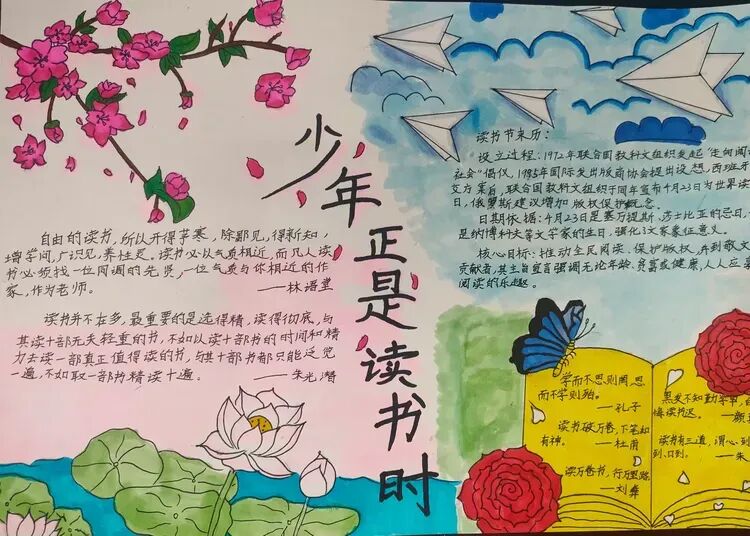 少年正是读书时
自由的读书，所以开得茅塞，除鄙见，得新知，
增学问，广识见，养性灵。读书必以气质相近，而凡人读
书必须找一位同调的先贤，一位气质与你相近的作
家，作为老师。
——林语堂
读书并不在多，最重要的是选得精，读得彻底，与
其读十部无关轻重的书，不如以读十部书的时间和精
力去读一部真正值得读的书，与其十部书都只能泛览
一遍，不如取一部书精读十遍。
——朱光潜
读书节来历：
设立过程：1972年联合国教科文组织发起"走向阅读
社会"倡仪，1995年国际发出版商协会提出设想，西班牙
交方案后，联合国教科文组织于同年宣布4月23日为世界读
日，俄罗斯建议增加版权保护概念。
日期依据：4月23日是塞万提斯、莎士比亚的忌日，
是纳博科夫等文学家的生日，强化文家象征意义。
核心目标：推动全民阅读、保护版权，并到敬文
贡献者，其主旨宣言强调无论年龄、贫富或健康，人人应享
阅读的乐趣。
学而不思则罔，思
而不学则殆。
——孔子
读书破万卷，下笔如
有神。
——杜甫
读万卷书，行万里路
——刘彝
黑发不知勤学早，
悔读书迟。
——颜
读书有三道，谓心到
到、口到。
——朱